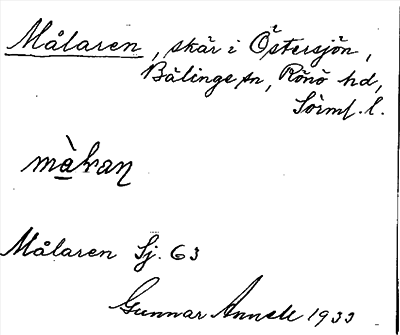 Målaren, skär i Östersjön,
Bälinge sn, Rönö hd,
Sörml. l.
màkan
Målaren Sj. 63
Gunnar 1933